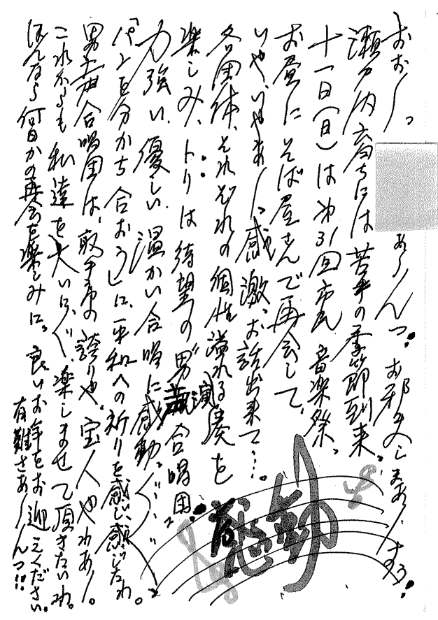 おおーっ ぁーんっ。お邪魔しまあーすう!
瀬戸内育ちには苦手の季節到来。
十一日(日)は第31回市民音楽祭。
お昼にそば屋さんで再会して、
いやいやあー、感激、お話出来て…。
各団体、それぞれの個性溢れる演奏を
楽しみ、トリは待望の男声合唱団。
力強い、優しい、温かい合唱に感動。
「パンを分かち合おう」に、平和への祈りを感じ、
男声合唱団は、取手市の誇りや、宝人やわあー。
これからも私達を大いに、楽しませて頂きたいわ。
ほんなら何日かの再会を楽しみに。良いお年をお迎えください。
有難さあーんっ!!
感動